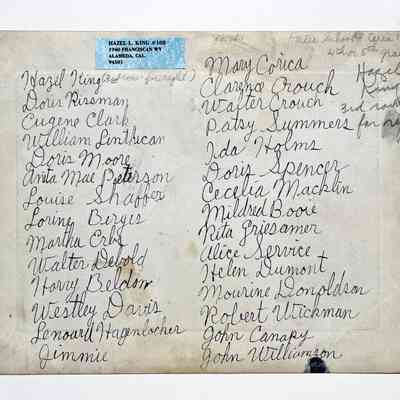 HAZEL L. KING #108
1940 FRANCISCAN WY
ALAMEDA, CAL.
94501
Hazel King
Doris Rissman
Eugene Clark
William Linthican
Doris Moore
Anita Mae Peterson
Louise Shaffer
Lorine Berges
Martha Erbe
Walter Debold
Harry Beldon
Westley Davis
Lenoard Hagenlocher
Jimmie
Mary Corica
Clarence Crouch
Walter Crouch
Patsy Summers
Ida Holms
Doris Spencer
Cecelia Macklin
Mildred Booie
Rita Griesamer
Alice Service
Helen Dumont
Mourine Donoldson
Robert Wickman
John Canapy
John Williamson
Hazel
King
3rd
for